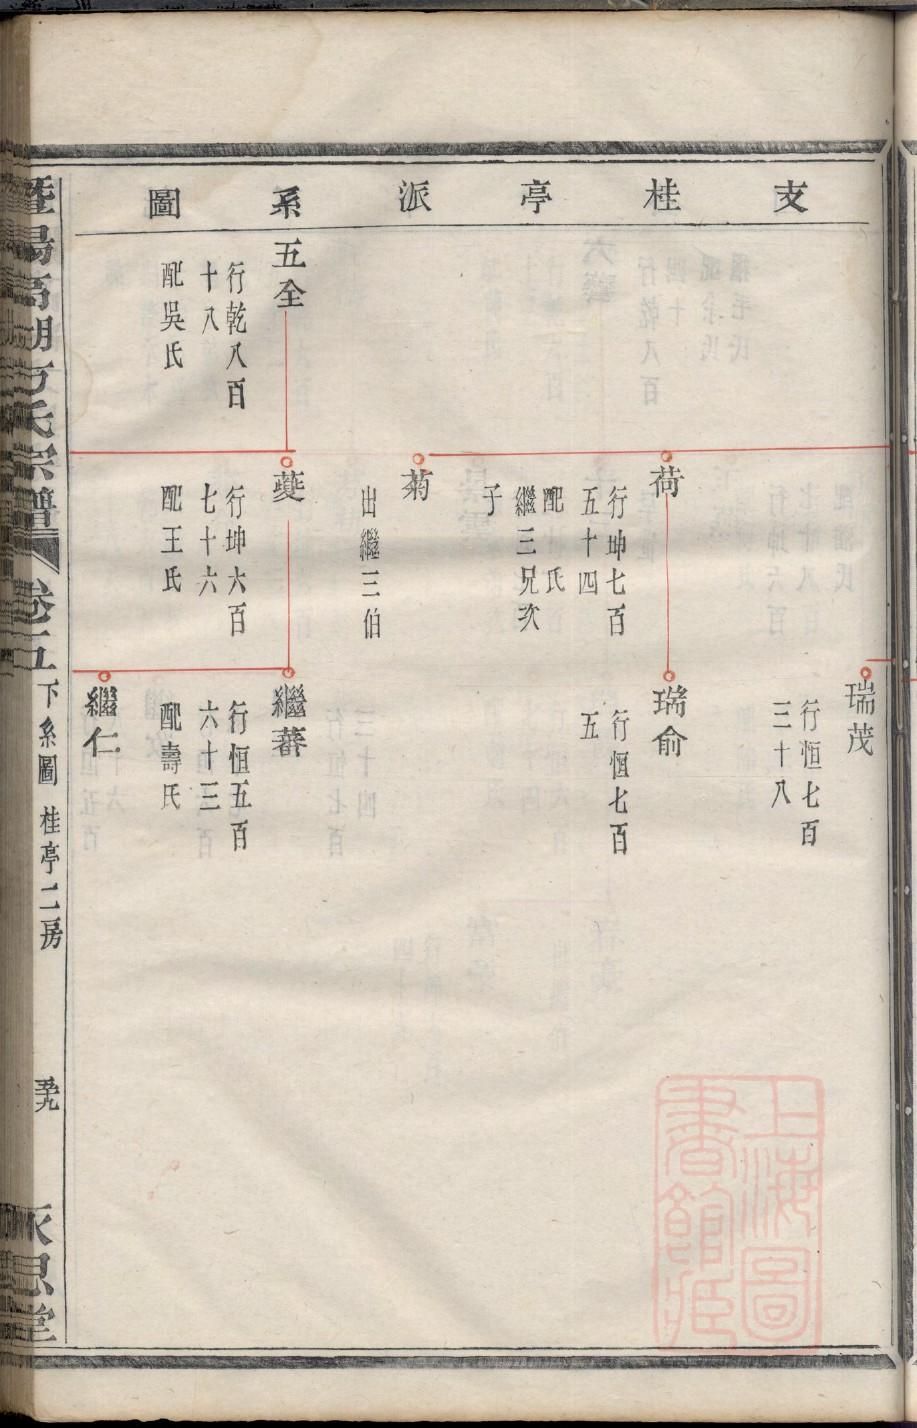 支桂亭派系圖
瑞茂
行恒七百
三十八
荷
行坤七百
五十四
配氏
繼三兄次
子
瑞俞
行恆七百
五
菊
出繼三伯
五全
行乾八百
十八
配吳氏
夔
行坤六百
七十六
配王氏
繼蕃
行恒五百
六十三
配壽氏
繼仁
宗譜
卷十五
下系圖 桂亭二房
永思堂
上海圖
書館藏